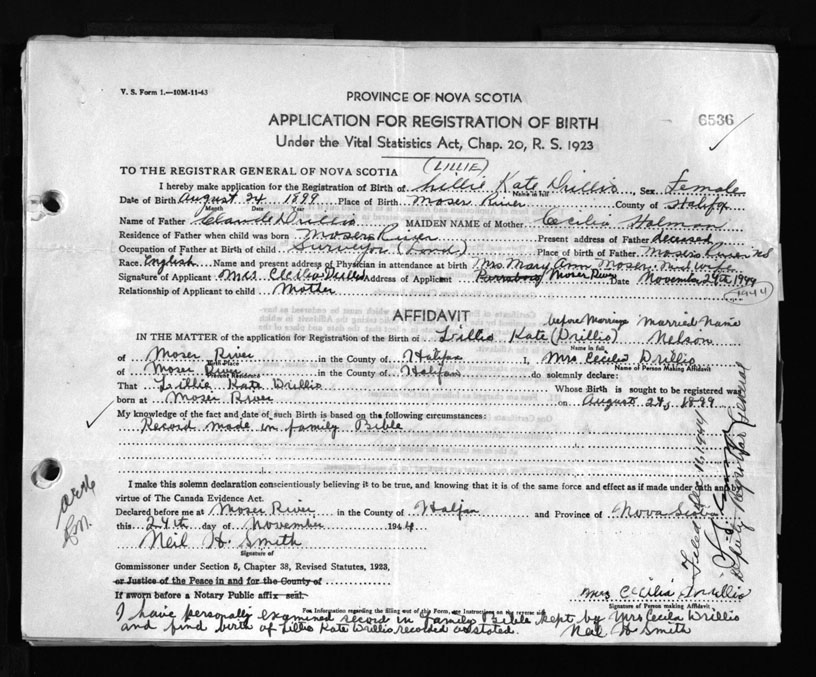 V. S. Form 1.—10M-11-43
PROVINCE OF NOVA SCOTIA
APPLICATION FOR REGISTRATION OF BIRTH
6536
Under the Vital Statistics Act, Chap. 20, R. S. 1923
TO THE REGISTRAR GENERAL OF NOVA SCOTIA
(LILLIE)
I hereby make application for the Registration of Birth of Lillie Kate Drillio, Sex Female
Name in full
Date of Birth August 24 1899 Place of Birth Moser River County of Halifax
Month Date Year
Name of Father Claude Drillio MAIDEN NAME of Mother Cecilia Holman
Residence of Father when child was born Moser River Present address of Father deceased
Occupation of Father at Birth of child Surveyor (Land) Place of birth of Father Moser River NS
Race English Name and present address of Physician in attendance at birth Mrs. Mary Ann Moser midwife
Signature of Applicant Mrs Cecilia Drillio Address of Applicant Moser River Date November 24th 1944
(1944)
Relationship of Applicant to child Mother
AFFIDAVIT
before Marriage Married Name
IN THE MATTER of the application for Registration of the Birth of Lillie Kate (Drillio) Nelson
Name in full
of Moser River in the County of Halifax I, Mrs Cecilia Drillio
Birth Place
Name of Person Making Affidavit
of Moser River in the County of Halifax do solemnly declare:
Present Residence
That Lillie Kate Drillio Whose Birth is sought to be registered was
born at Moser River on August 24, 1899
My knowledge of the fact and date of such Birth is based on the following circumstances:
Record made in family Bible
I make this solemn declaration conscientiously believing it to be true, and knowing that it is of the same force and effect as if made under oath and by
virtue of The Canada Evidence Act.
Declared before me at Moser River in the County of Halifax and Province of Nova Scotia
this 24th day of November 1944
Neil H. Smith
Signature of
Commissoner under Section 5, Chapter 38, Revised Statutes, 1923,
or Justice of the Peace in and for the County of
If sworn before a Notary Public affix seal.
Mrs Cecilia Drillio
Signature of Person making Affidavit
For Information regarding the filling out of this Form, see Instructions on the reverse side
I have personally examined record in family Bible kept by Mrs Cecila Drillio
and find birth of Lillie Kate Drillio recorded as stated. Neil H Smith
Filed Dec 16, 1944
Deputy Registrar General